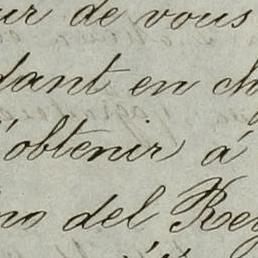 ur de vous
dant en ch
'obtenir á
no del Rey